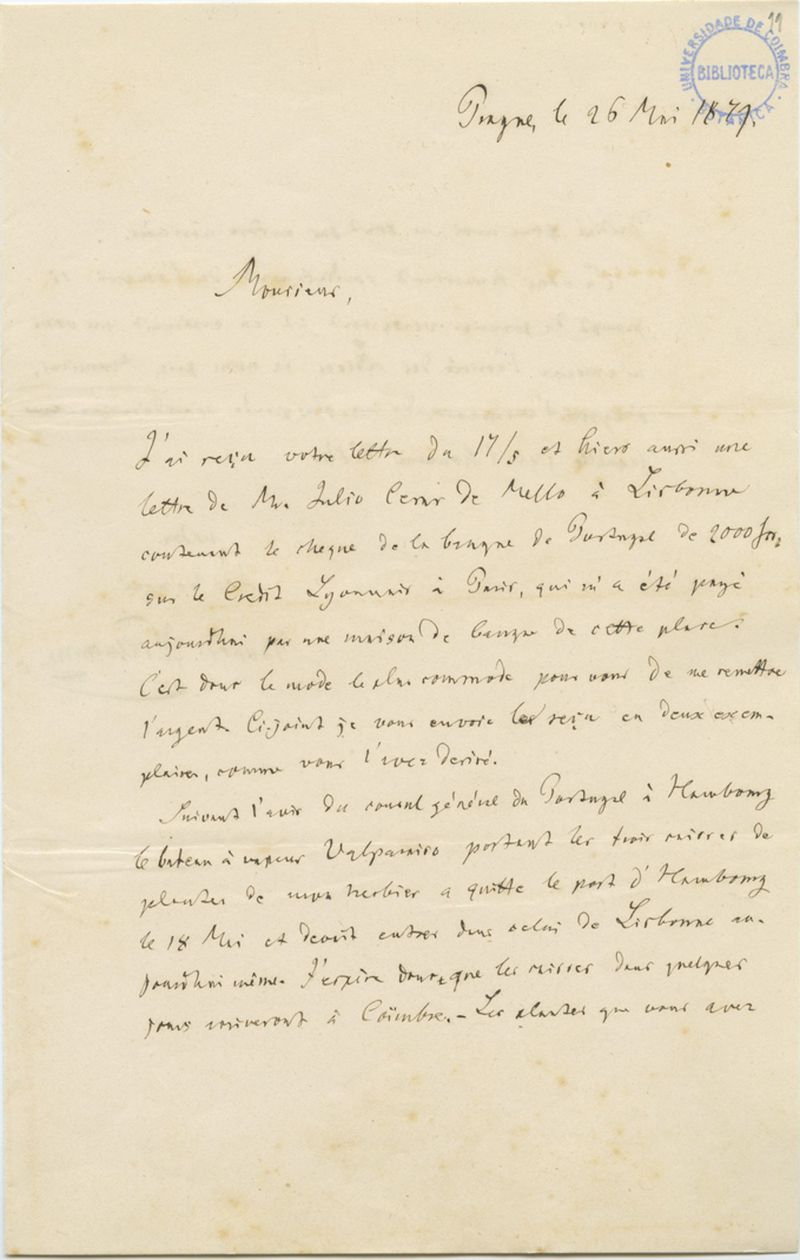 11
UNIVERSIDADE DE COIMBRA
BIBLIOTECA
BOTANICA
Prague, le 26 Mai 1879.
Monsieur,
J'ai reçu votre lettre du 17/5 et hiers aussi une
lettre de Mr. Julio Cesar de Mello à Lisbonne
contenant le cheque de la banque de Portugal de 2000 frs,
sur le Credit Lyonnais à Paris, qui m'a été payé
aujourdhui par une maison de banque de cette place.
C'est donc le mode le plus commode pour vous de me remettre
l'argent. Ci-joint je vous envoie le reçu en deux exem-
plaires, comme vous l'avez desiré.
Suivant l'avis du consul général du Portugal à Hambourg
le bateau à vapeur Valparaiso portant les trois caisses de
plantes de mon herbier a quitté le port d'Hambourg
le 18 Mai et devait entrer dans celui de Lisbonne au-
jourdhui même. J'espère donc, que les caisses dans quelques
jours arriveront à Coïmbre. - Les plantes que vous avez